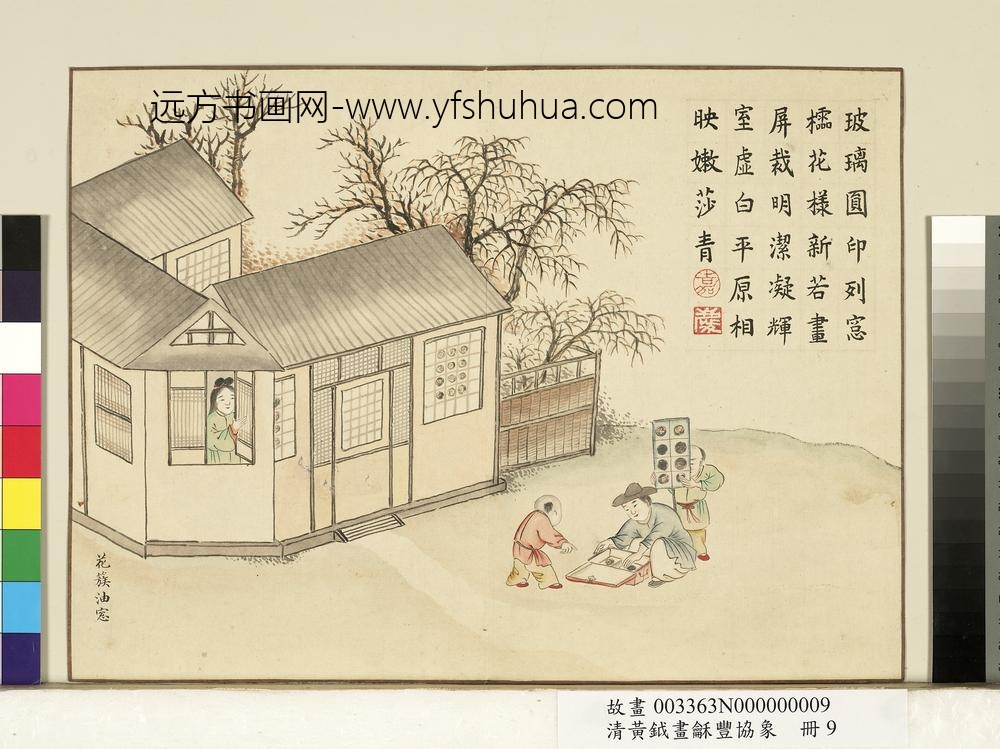 远方书画网-www.yfshuhua.com
玻璃圓印列窻
櫺花樣新若畫
屏裁明潔凝輝
室虛白平原相
映嫩莎青
嘉
慶
花簇油窓
故畫 003363N000000009
清黃鉞畫龢豐協象 冊 9